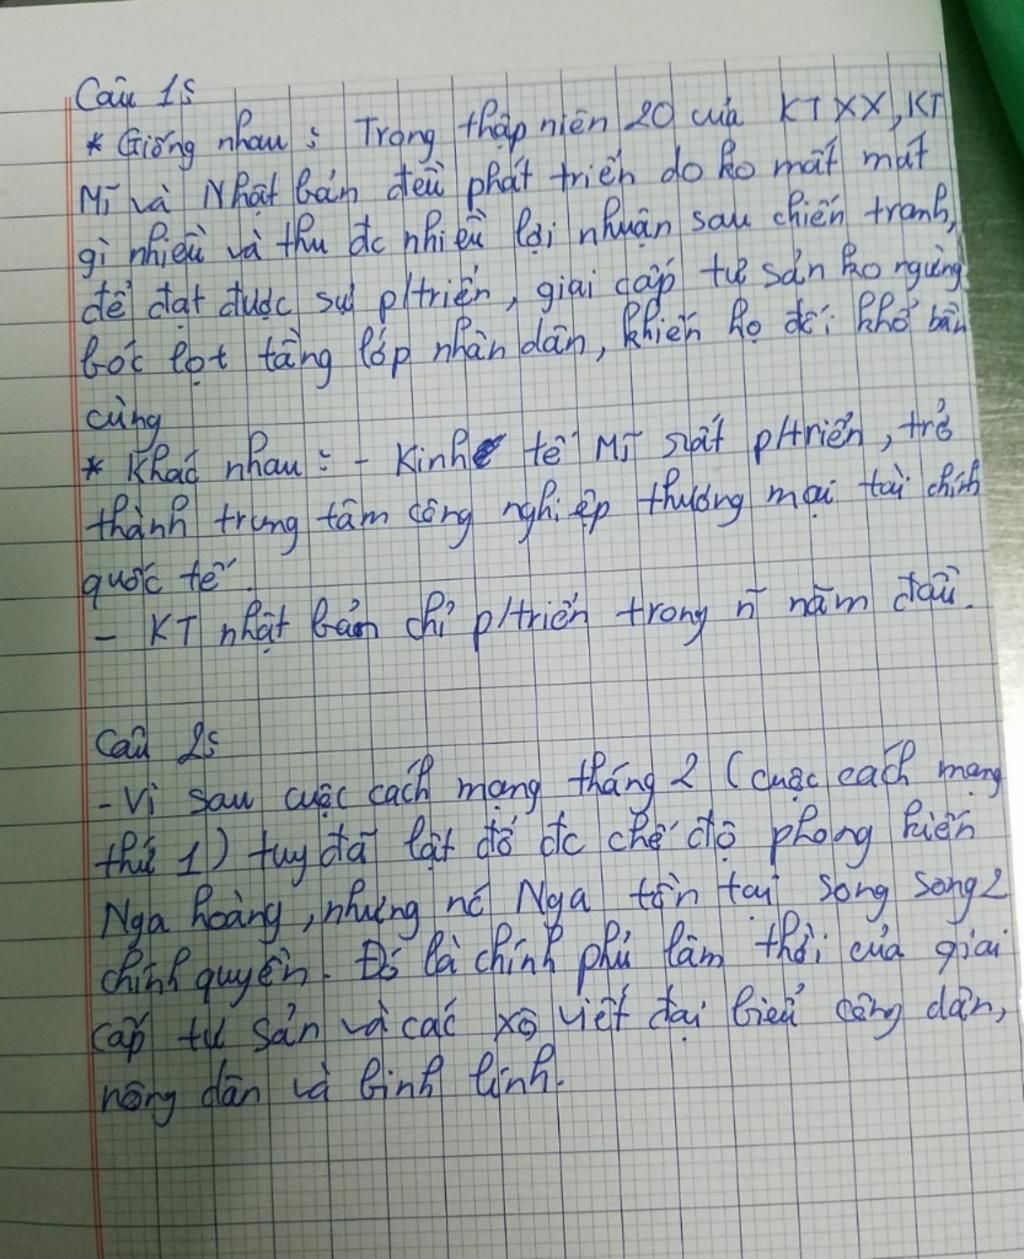 Câu 1:
* Giống nhau : Trong thập niên 20 của KT XX, KT
Mĩ và Nhật bản đều phát triển do ko mất mát
gì nhiều và thu đc nhiều lợi nhuận sau chiến tranh,
để đạt được sự p/triển, giai cấp tư sản ko ngừng
bóc lọt tầng lớp nhân dân, khiến họ đói khổ bần
cùng
* Khác nhau : - Kinh tế Mĩ rất p/triển, trở
thành trung tâm công nghiệp thương mại tài chính
quốc tế.
- KT nhật bản chỉ p/triển trong n~ năm đầu.
Câu 2:
- Vì sau cuộc cách mạng tháng 2 (cuộc cách mạng
thứ 1) tuy đã lật đổ đc chế độ phong kiến
Nga hoàng, nhưng nc Nga tồn tại song song 2
chính quyền. Đó là chính phủ lâm thời của giai
cấp tư sản và các xô viết đại biểu công dân,
nông dân và binh lính.